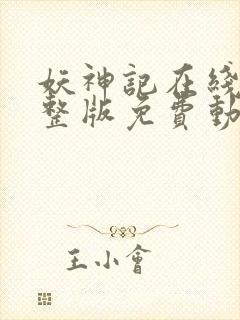 妖神記在綫
整版免費動
王小會